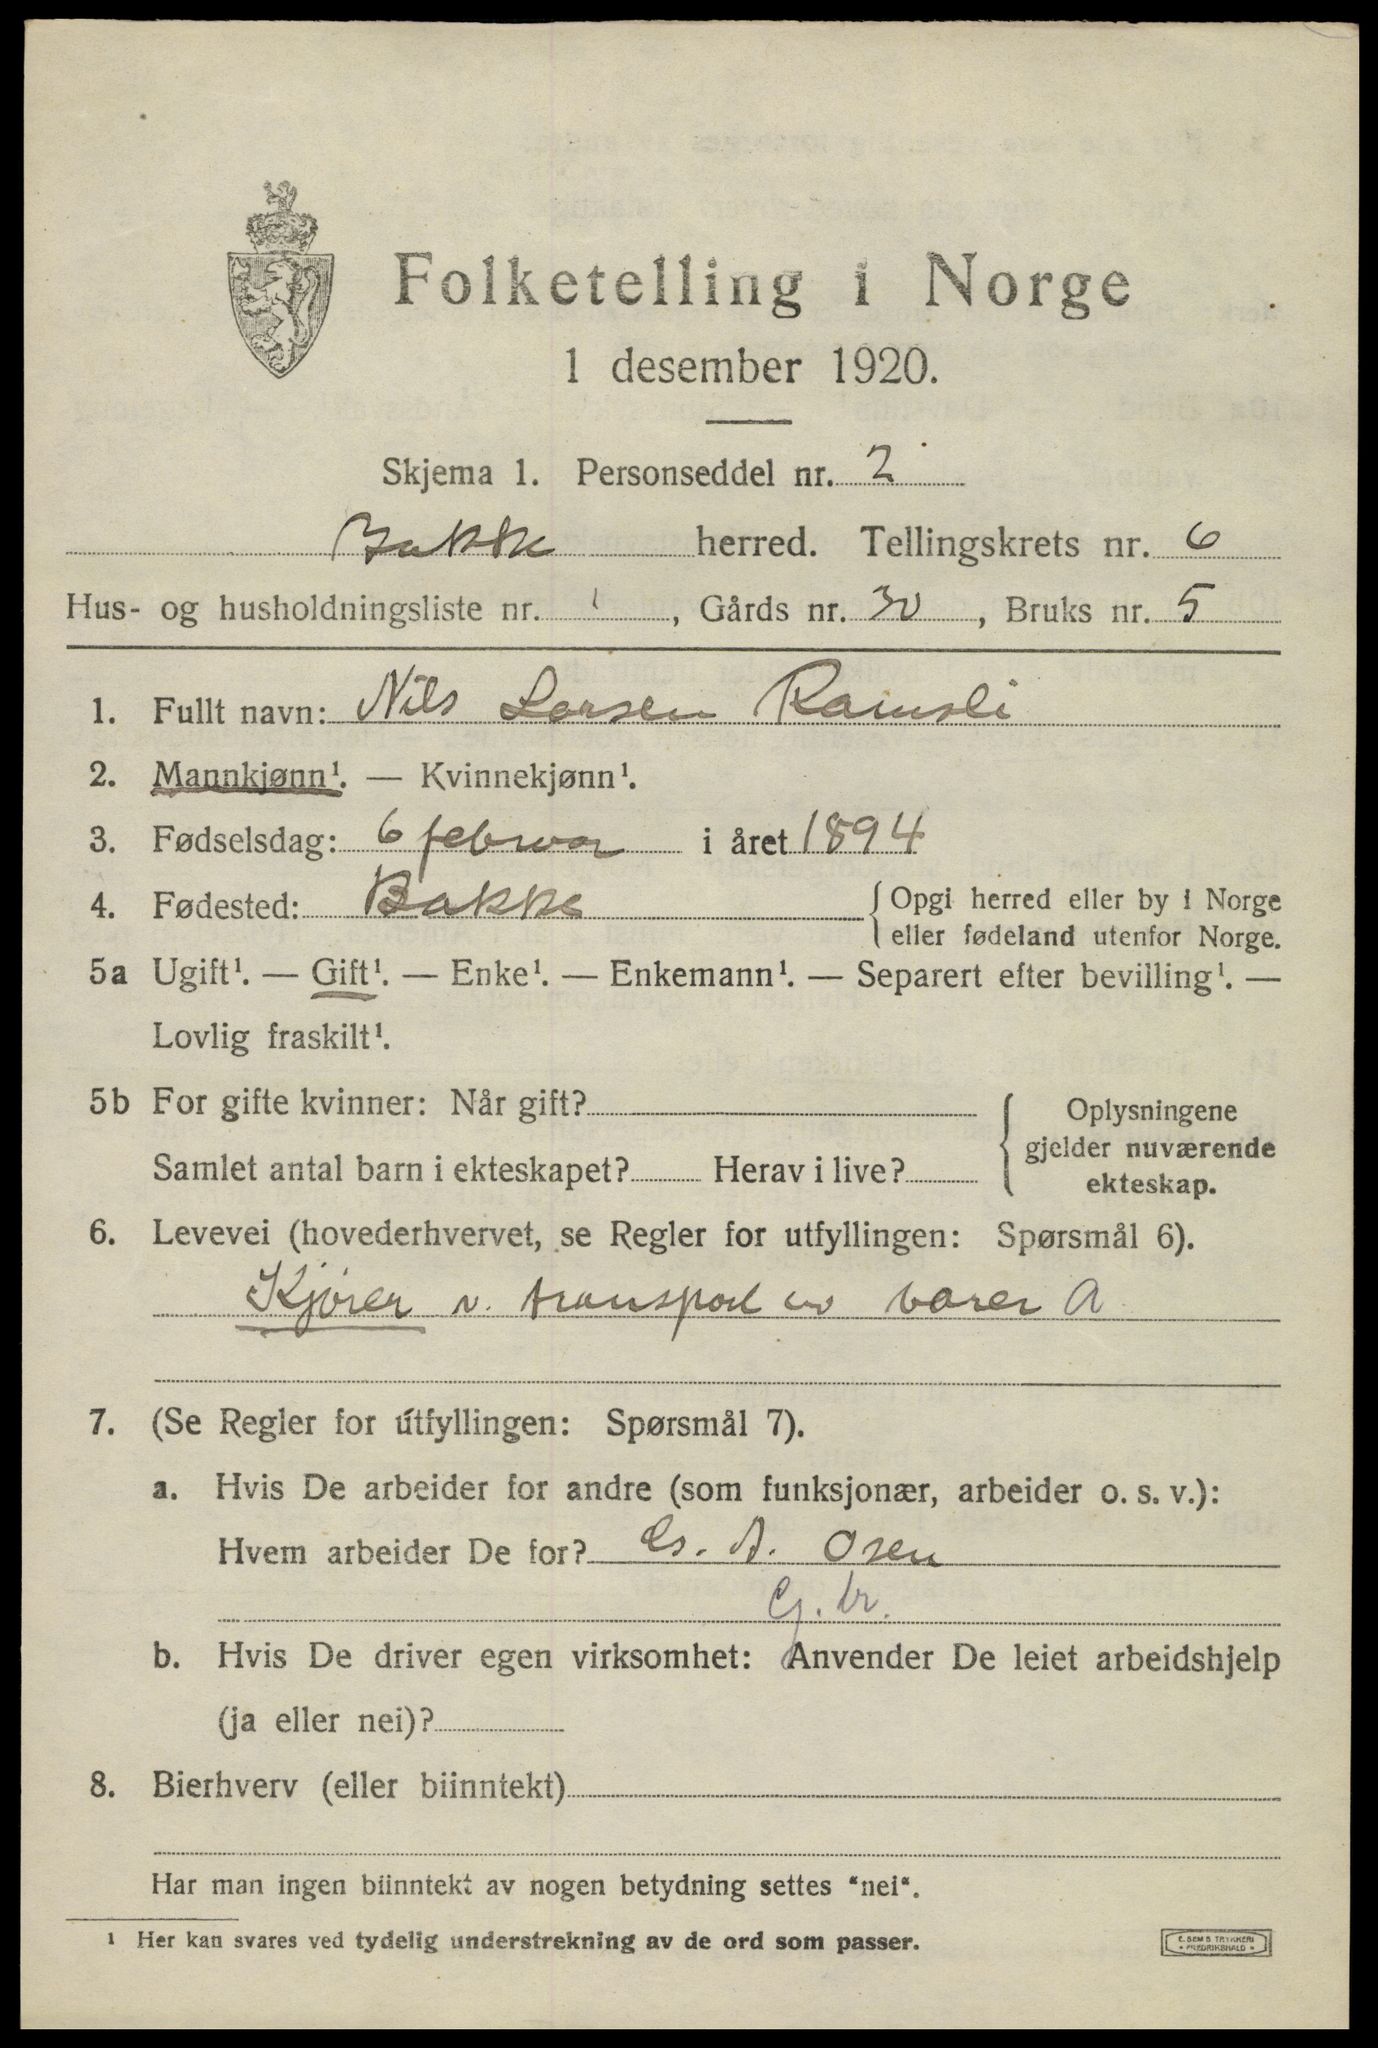 Folketelling i Norge
1 desember 1920.
Skjema 1. Personseddel nr. 2
Bakke herred. Tellingskrets nr. 6
Hus- og husholdningsliste nr. 1, Gårds nr. 30, Bruks nr. 5
1. Fullt navn: Nils Larsen Ramsli
2. Mannkjønn¹. — Kvinnekjønn¹.
3. Fødselsdag: 6 februar i året 1894
4. Fødested: Bakke {Opgi herred eller by i Norge
eller fødeland utenfor Norge.
5a Ugift¹. — Gift¹. — Enke¹. — Enkemann¹. — Separert efter bevilling¹. —
Lovlig fraskilt¹.
5b For gifte kvinner: Når gift?
Samlet antal barn i ekteskapet? Herav i live?
Oplysningene
gjelder nuværende
ekteskap.
6. Levevei (hovederhvervet, se Regler for utfyllingen: Spørsmål 6).
Kjører v. transport av varer A
7. (Se Regler for utfyllingen: Spørsmål 7).
a. Hvis De arbeider for andre (som funksjonær, arbeider o. s. v.):
Hvem arbeider De for? A. Osen
b. Hvis De driver egen virksomhet: Anvender De leiet arbeidshjelp
(ja eller nei)?
8. Bierhverv (eller biinntekt)
Har man ingen biinntekt av nogen betydning settes "nei".
¹ Her kan svares ved tydelig understrekning av de ord som passer.
E. SEM S TRYKKERI
* FREDRIKSHALD *